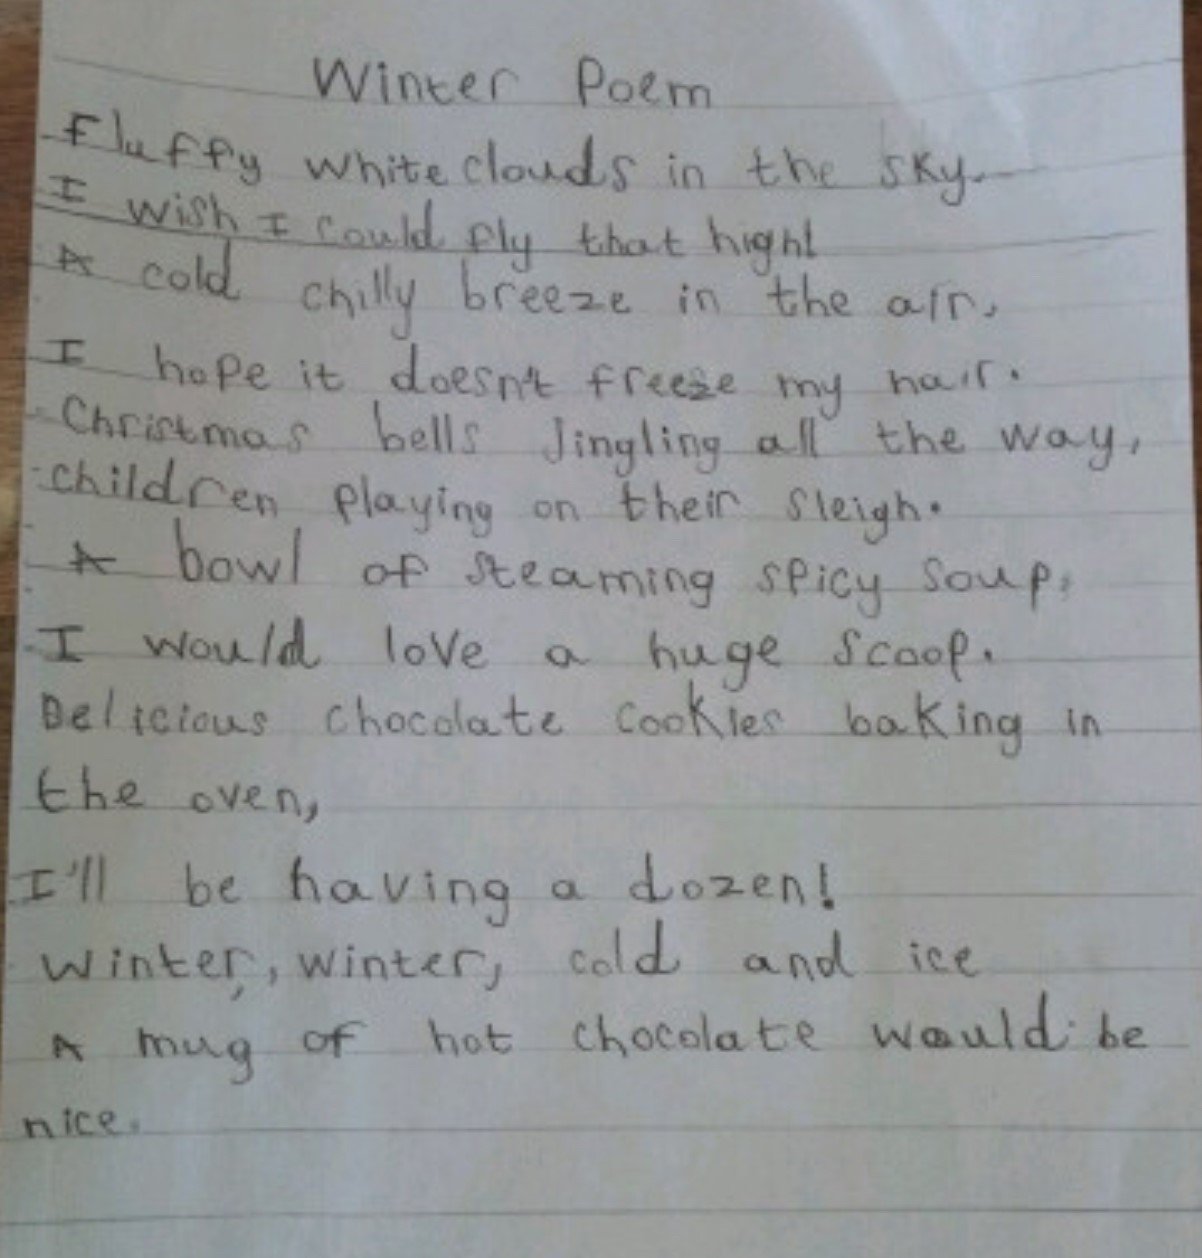 Winter Poem
Fluffy white clouds in the sky.
I wish I could fly that high!
A cold chilly breeze in the air,
I hope it doesn't freeze my hair.
Christmas bells Jingling all the way,
children playing on their sleigh.
A bowl of steaming spicy soup,
I would love a huge scoop.
Delicious chocolate cookies baking in
the oven,
I'll be having a dozen!
Winter, winter, cold and ice
A mug of hot chocolate would be
nice.